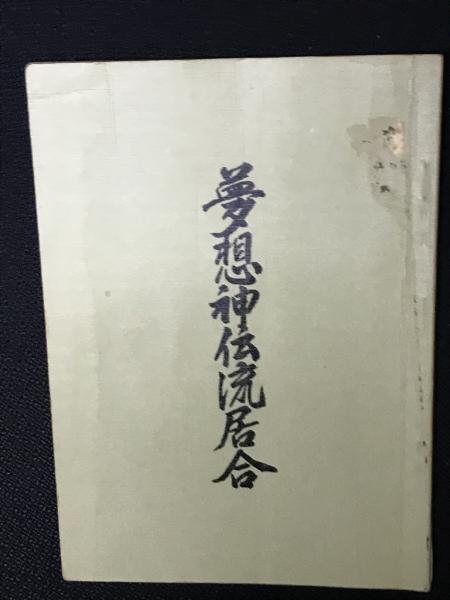 夢想神伝流居合